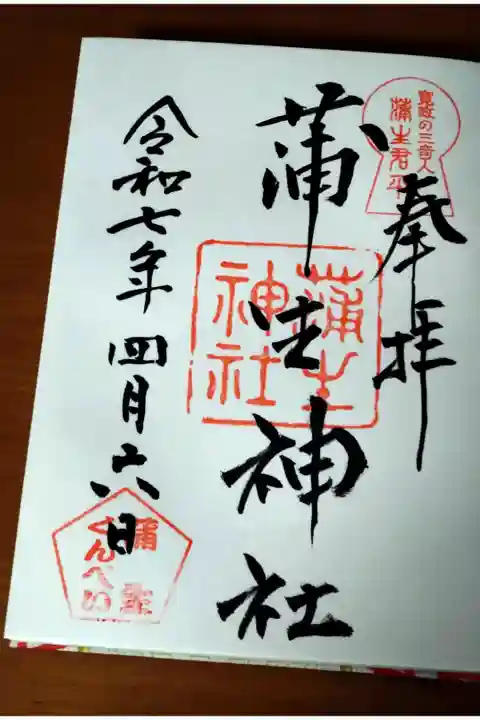 奉拝
寛政の三奇人
蒲生君平
蒲生神社
蒲生
神社
令和七年四月六日
蒲生
くんぺい